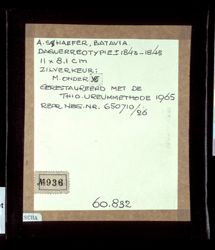 A. SCHAEFER, BATAVIA
DAGUERREOTYPIE ± 1843-1845
11 x 8.1 cm
ZILVERKEUR:
M. ONDER
GERESTAUREERD MET DE
THIO-UREUMMETHODE 1965
REPR. NEG. NR. 650710/
26
№936
60.832
SCHA